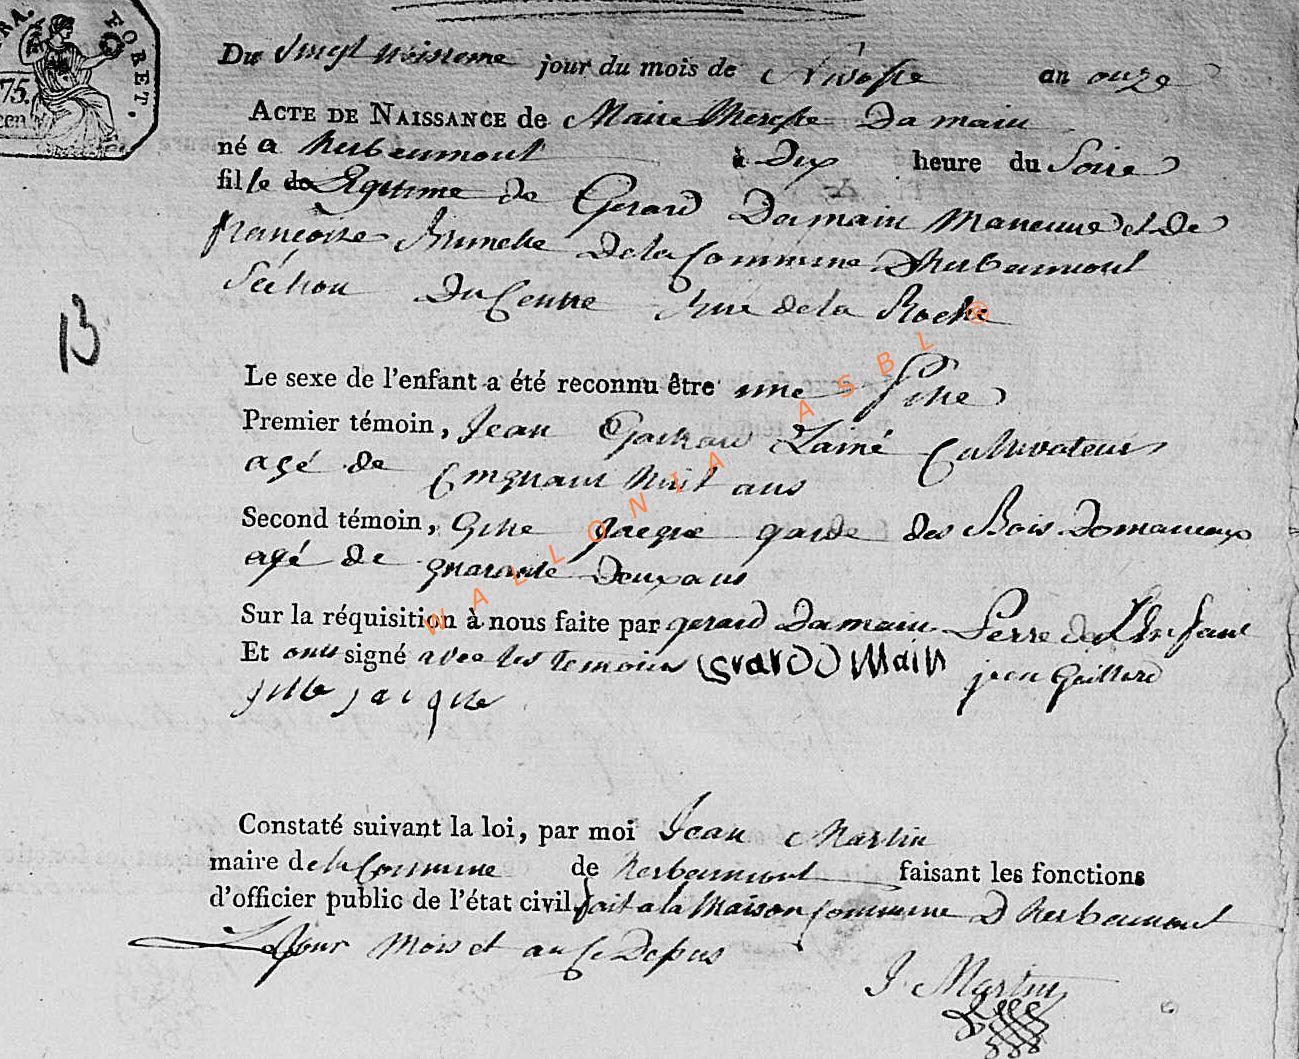 RA. FORET.
75.
cen
Du Vingt troisieme jour du mois de Nivosse an onze
ACTE DE NAISSANCE de Marie Theresse Damain
né a herbeumont à Dix heure du Soire
fille de Legitime de Gerard Damain Maneuvre et de
francoise Brunelle De la Commune D'herbeumont
Section Du Centre Rue de la Roche
13
Le sexe de l'enfant a été reconnu être une fille
Premier témoin, Jean Gaillard Lainé Cultivateur
agé de Cinquant huit ans
Second témoin, Gille Jacque garde des Bois Domaniaux
agé de quarante Deux ans
Sur la réquisition à nous faite par gerard Damain Perre de L'Enfant
Et ont signé avec les temoins Gerard Damain jean Gaillard
gille jacque
Constaté suivant la loi, par moi Jean Martin
maire de la Commune de herbeumont faisant les fonctions
d'officier public de l'état civil. fait a la Maison Commune D'herbeumont
Le Jour Mois et an Ce Depus
J. Martin
WALLONIA ASBL ®